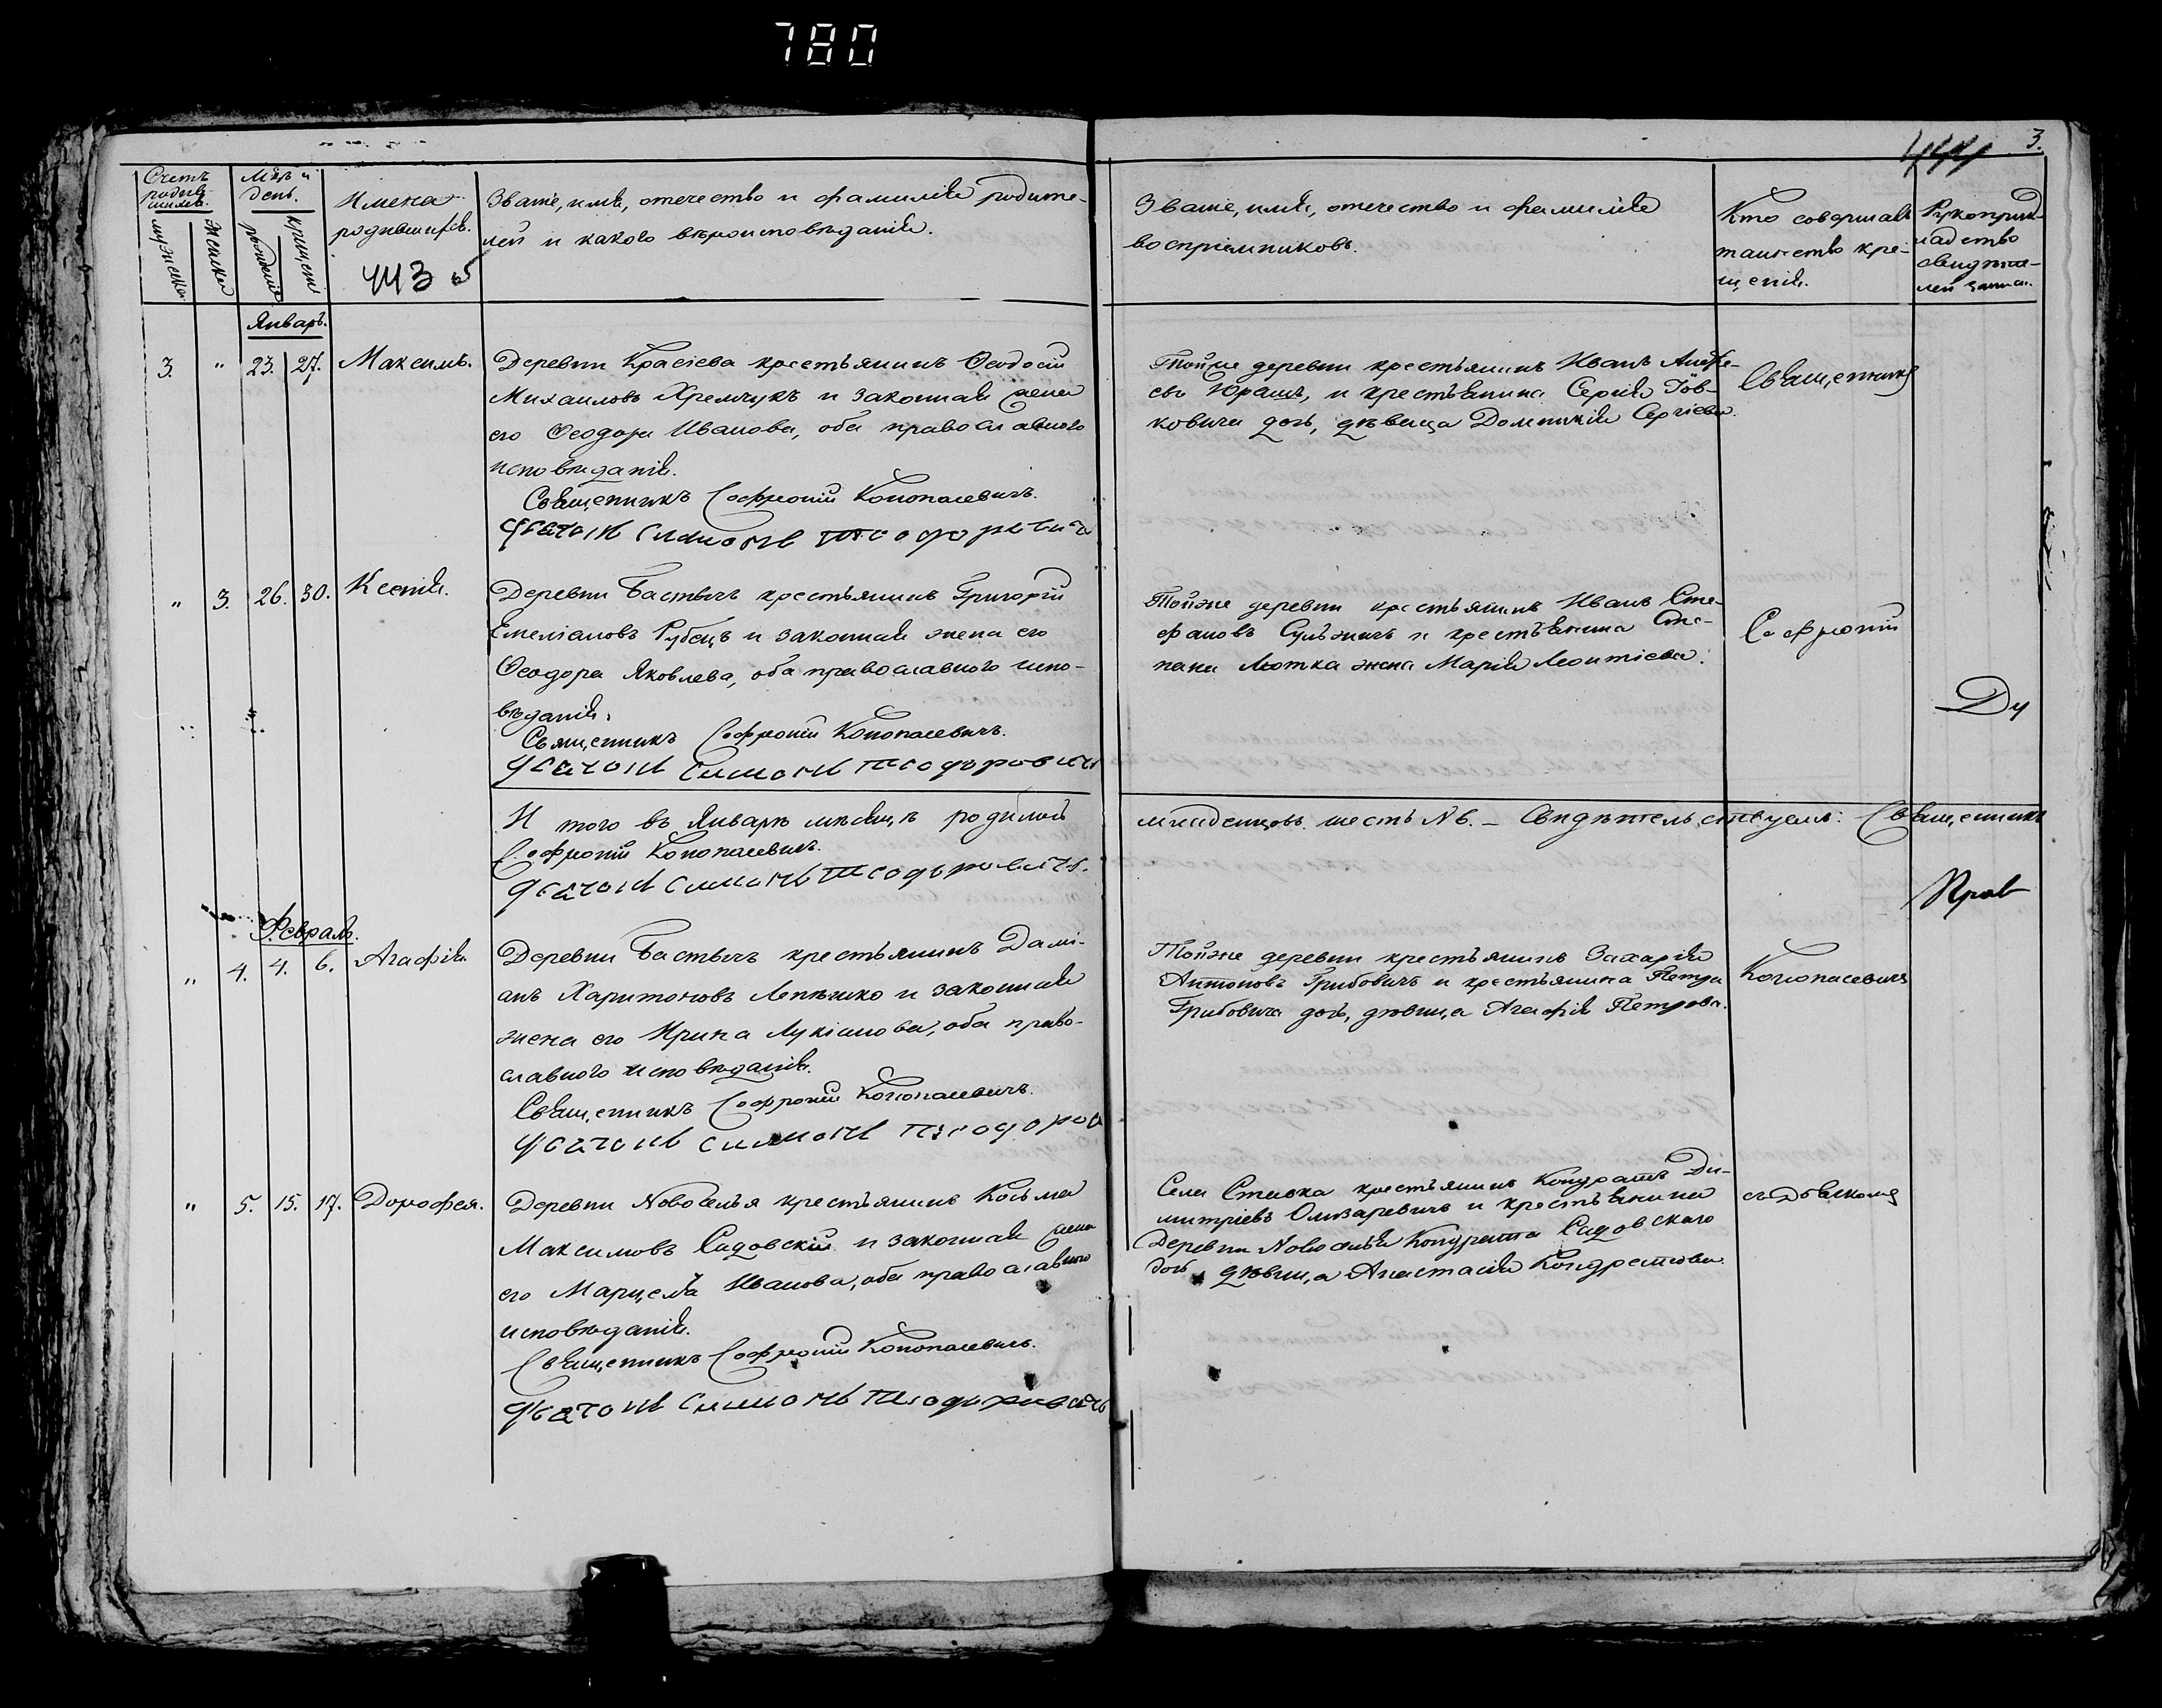 780
3.
444
Счетъ родив-шихся.
Мѣс. и день.
Имена родившихся.
443 об
Званіе, имя, отечество и фамилія родите-
лей и какого вѣроисповѣданія.
мужска
женска
рожденія
крещенія
Званіе, имя, отечество и фамилія
воспріемниковъ.
Кто совершалъ
таинство кре-
щенія.
Рукоприк-
ладство
свидѣте-
лей записи.
Январь.
3. " 23. 27. Максимъ.
Деревни Красіева крестьянинъ Ѳеодосій
Михаиловъ Хремчукъ и законная жена
его Ѳеодора Иванова, оба православнаго
исповѣданія.
Священникъ Софроній Конопасевичъ.
Дьячокъ Симонъ Теодоровичъ
Тойже деревни крестьянинъ Иванъ Андре-
евъ Юрашъ, и крестьянина Сергія
ковича дочь, дѣвица Домникія Сергіева.
Священникъ
" 3. 26. 30. Ксенія.
Деревни Бастычъ крестьянинъ Григорій
Емеліановъ Рубецъ и законная жена его
Ѳеодора Яковлева, оба православнаго испо-
вѣданія.
Священникъ Софроній Конопасевичъ.
Дьячокъ Симонъ Теодоровичъ
Тойже деревни крестьянинъ Иванъ Сте-
фановъ и крестьянина Сте-
пана Лютка жена Марія Леонтіева.
Софроній
Ду
И того въ Январѣ мѣсяцѣ родилось
младенцовъ шесть N6. – Свидѣтельствуемъ: Священникъ
Софроній Конопасевичъ.
Дьячокъ Симонъ Теодоровичъ.
Прав
Февраль.
" 4. 4. 6. Агафія.
Деревни Бастычъ крестьянинъ Дамі-
анъ Харитоновъ Лепешко и законная
жена его Ирина Лукіанова, оба право-
славного исповѣданія.
Священникъ Софроній Конопасевичъ.
Дьячокъ Симонъ Теодоров
Тойже деревни крестьянинъ Захарія
Антоновъ Грибовичъ и крестьянина Петра
Грибовича дочь, дѣвица Агафія Петрова.
Конопасевичъ
" 5. 15. 17. Дорофея.
Деревни Новоселья крестьянинъ Косьма
Максимовъ Садовскій и законная жена
его Марцеля Иванова, оба православнаго
исповѣданія.
Священникъ Софроній Конопасевичъ.
Дьячокъ Симонъ Теодоровичъ
Села Ставка крестьянинъ Кондратъ Ди-
митріевъ Олизаревичъ и крестьянина
Деревни Новоселья Кондрата Садовскаго
дочь дѣвица Анастасія Кондратова.
съ дьячкомъ